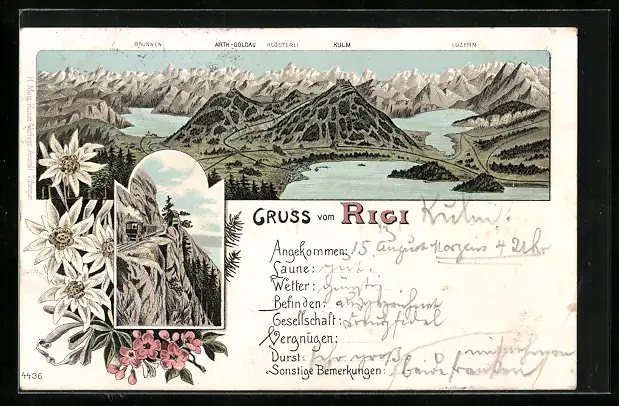 BRUNNEN ARTH-GOLDAU KLÖSTERLI KULM LUZERN
GRUSS vom RIGI Kulm.
Angekommen: 15. August Morgens 4 Uhr
Laune: gut.
Wetter: günstig
Befinden: ausgezeichnet
Gesellschaft: kreuzfidel
Vergnügen:
Durst: sehr groß
Sonstige Bemerkungen: beide
4436